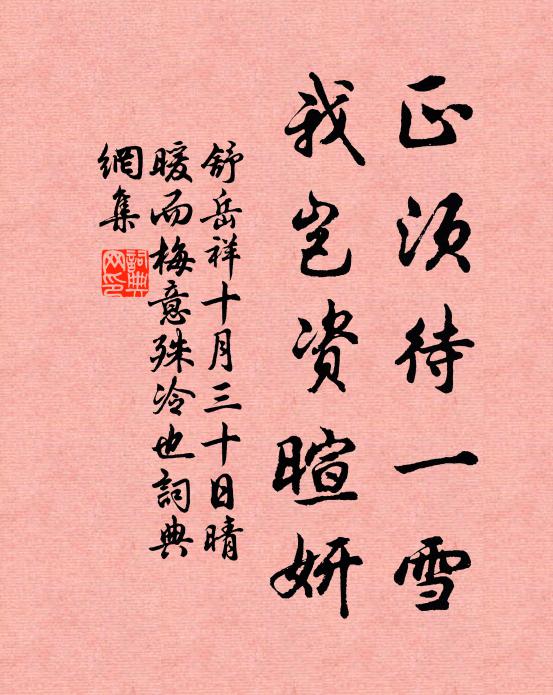 正须待一雪
我岂资暄妍
舒岳祥十月三十日晴
暖而梅意殊冷也詞典
網集
詞典
网印